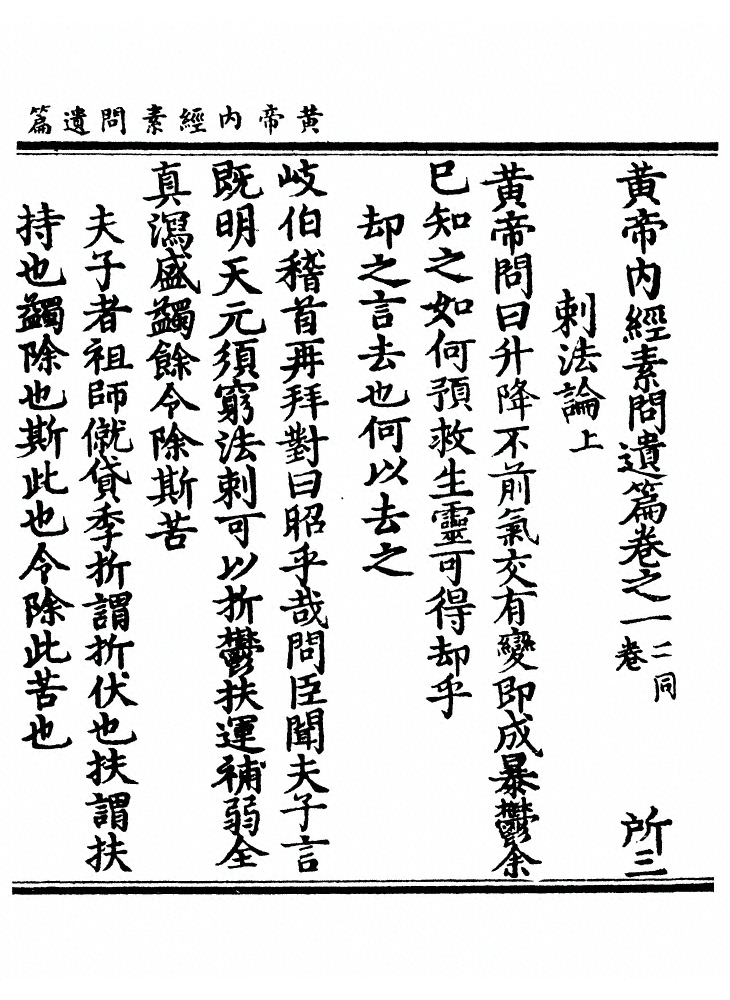 黃帝內經素問遺篇
黃帝內經素問遺篇卷之一 二同卷 所三
刺法論上
黃帝問曰升降不前氣交有變即成暴鬱余
巳知之如何預救生靈可得却乎
却之言去也何以去之
岐伯稽首再拜對曰昭乎哉問臣聞夫子言
既明天元須窮法刺可以折鬱扶運補弱全
真瀉盛蠲餘令除斯苦
夫子者祖師僦貸季折謂折伏也扶謂扶
持也蠲除也斯此也令除此苦也